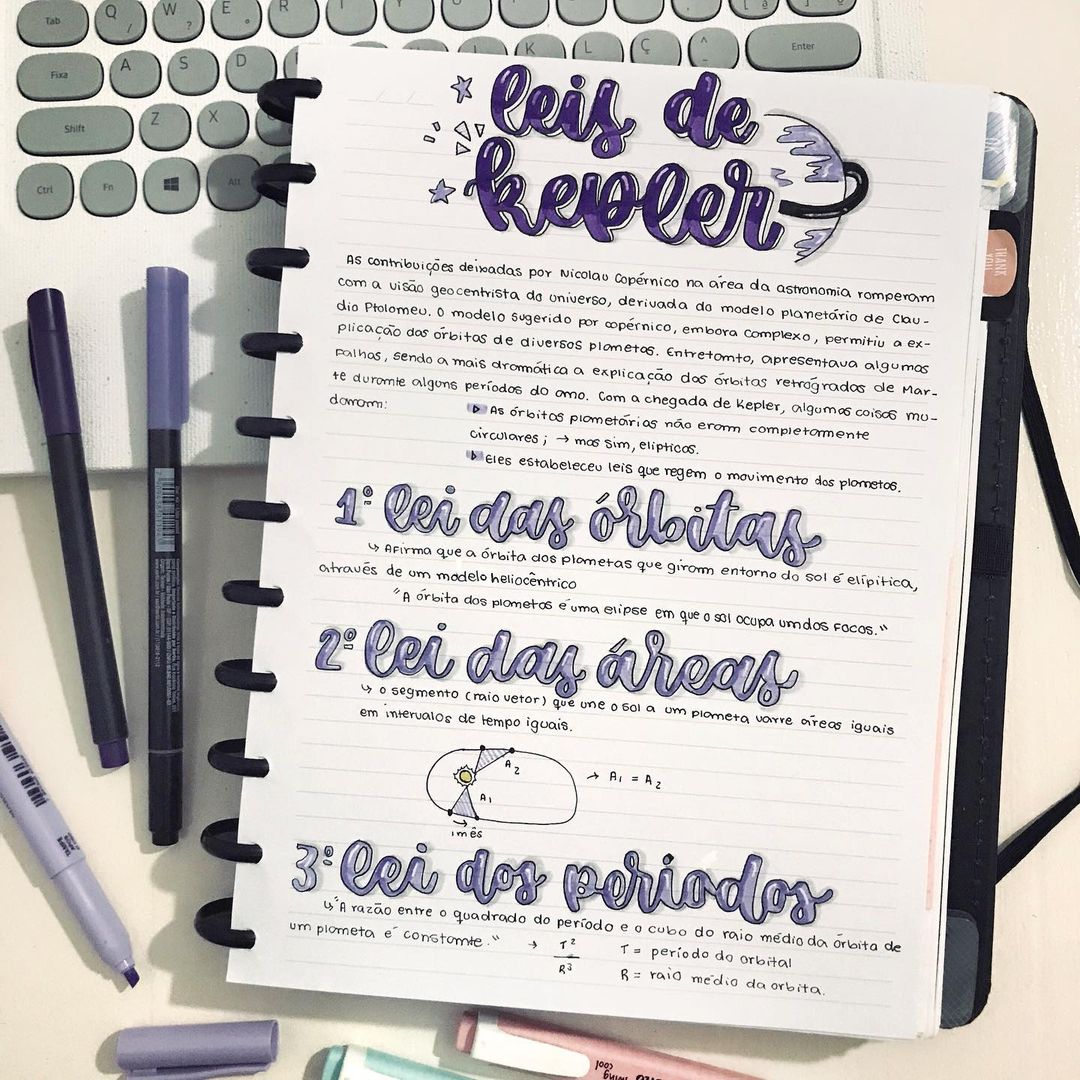 Tab
Q
W
E
R
Fixa
A
S
D
K
L
Ç
Enter
Shift
Z
X
Ctrl
Fn
Alt
THANK YOU
leis de
kepler
As contribuições deixadas por Nicolau Copérnico na área da astronomia romperam
com a visão geocentrista do universo, derivada do modelo planetário de Clau-
dio Ptolomeu. O modelo sugerido por copérnico, embora complexo, permitiu a ex-
plicação das órbitas de diversos planetas. Entretanto, apresentava algumas
falhas, sendo a mais dramática a explicação das órbitas retrógradas de Mar-
te durante alguns períodos do ano. Com a chegada de Kepler, algumas coisas mu-
daram:
▷ As órbitas planetárias não eram completamente
circulares; → mas sim, elipticas.
▷ Eles estabeleceu leis que regem o movimento dos planetas.
1º lei das órbitas
↳ Afirma que a órbita dos planetas que giram entorno do sol é elípitica,
através de um modelo heliocêntrico
"A órbita dos planetas é uma elipse em que o sol ocupa um dos focos."
2º lei das áreas
↳ o segmento (raio vetor) que une o sol a um planeta varre áreas iguais
em intervalos de tempo iguais.
A2
→ A1 = A2
A1
1 mês
3º lei dos períodos
↳ "A razão entre o quadrado do período e o cubo do raio médio da órbita de
um planeta é constante." → T²/R³
T = período do orbital
R = raio médio da orbita.
cool